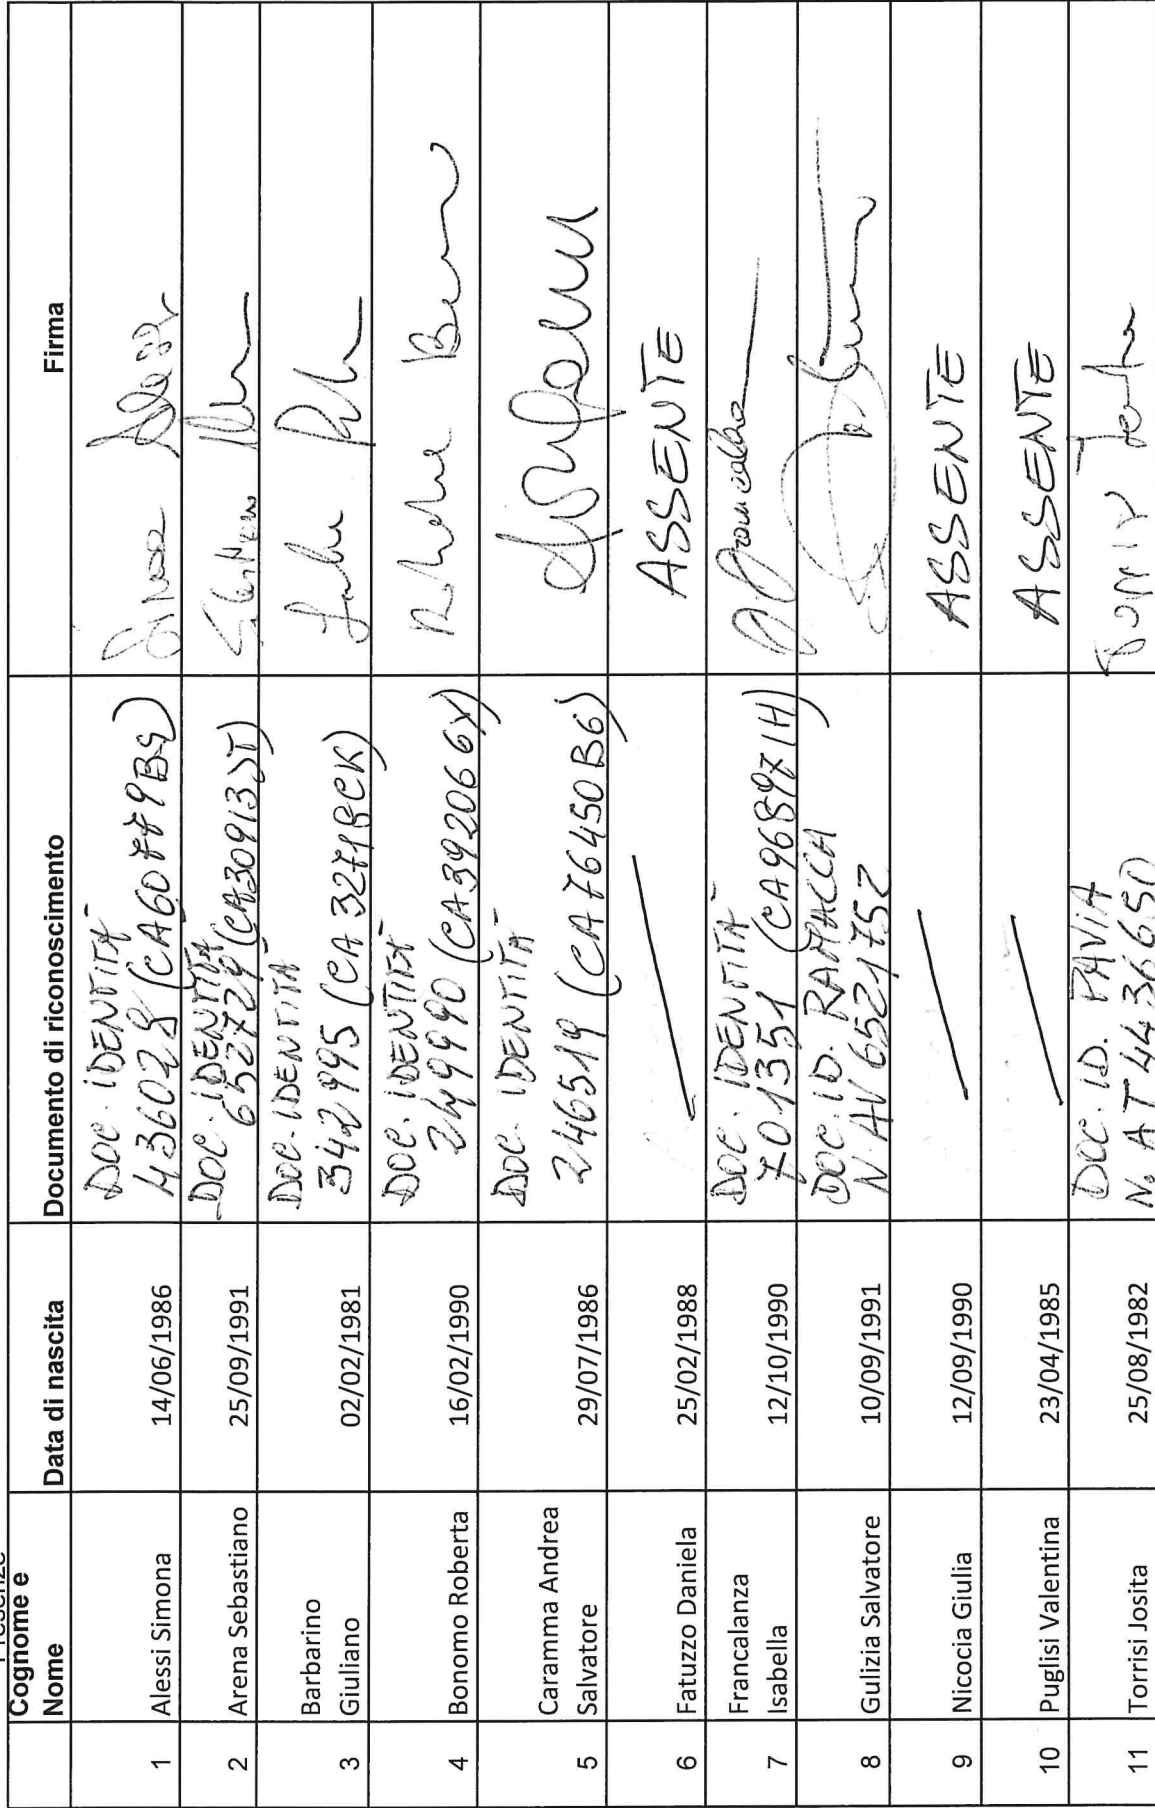 Presenze
Cognome e Nome Data di nascita Documento di riconoscimento Firma
1 Alessi Simona 14/06/1986 DOC. IDENTITÀ
436028 (CA60779BG)
2 Arena Sebastiano 25/09/1991 DOC. IDENTITÀ
652729 (CA30913JT)
3 Barbarino Giuliano 02/02/1981 DOC. IDENTITÀ
342995 (CA32718CK)
4 Bonomo Roberta 16/02/1990 DOC. IDENTITÀ
249990 (CA39206GX)
5 Caramma Andrea Salvatore 29/07/1986 DOC. IDENTITÀ
246519 (CA76450BG)
6 Fatuzzo Daniela 25/02/1988 ASSENTE
7 Francalanza Isabella 12/10/1990 DOC. IDENTITÀ
701351 (CA96897IH)
8 Gulizia Salvatore 10/09/1991 DOC. ID. RAMACCA
N. AV 6521752
9 Nicocia Giulia 12/09/1990 ASSENTE
10 Puglisi Valentina 23/04/1985 ASSENTE
11 Torrisi Josita 25/08/1982 DOC. ID. PAVIA
N. AT 4436650